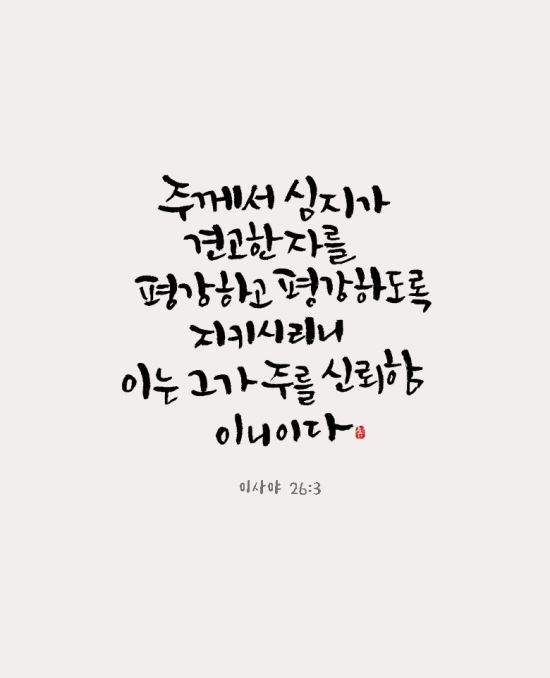 주께서 심지가
견고한 자를
평강하고 평강하도록
지키시리니
이는 그가 주를 신뢰함
이니이다
이사야 26:3